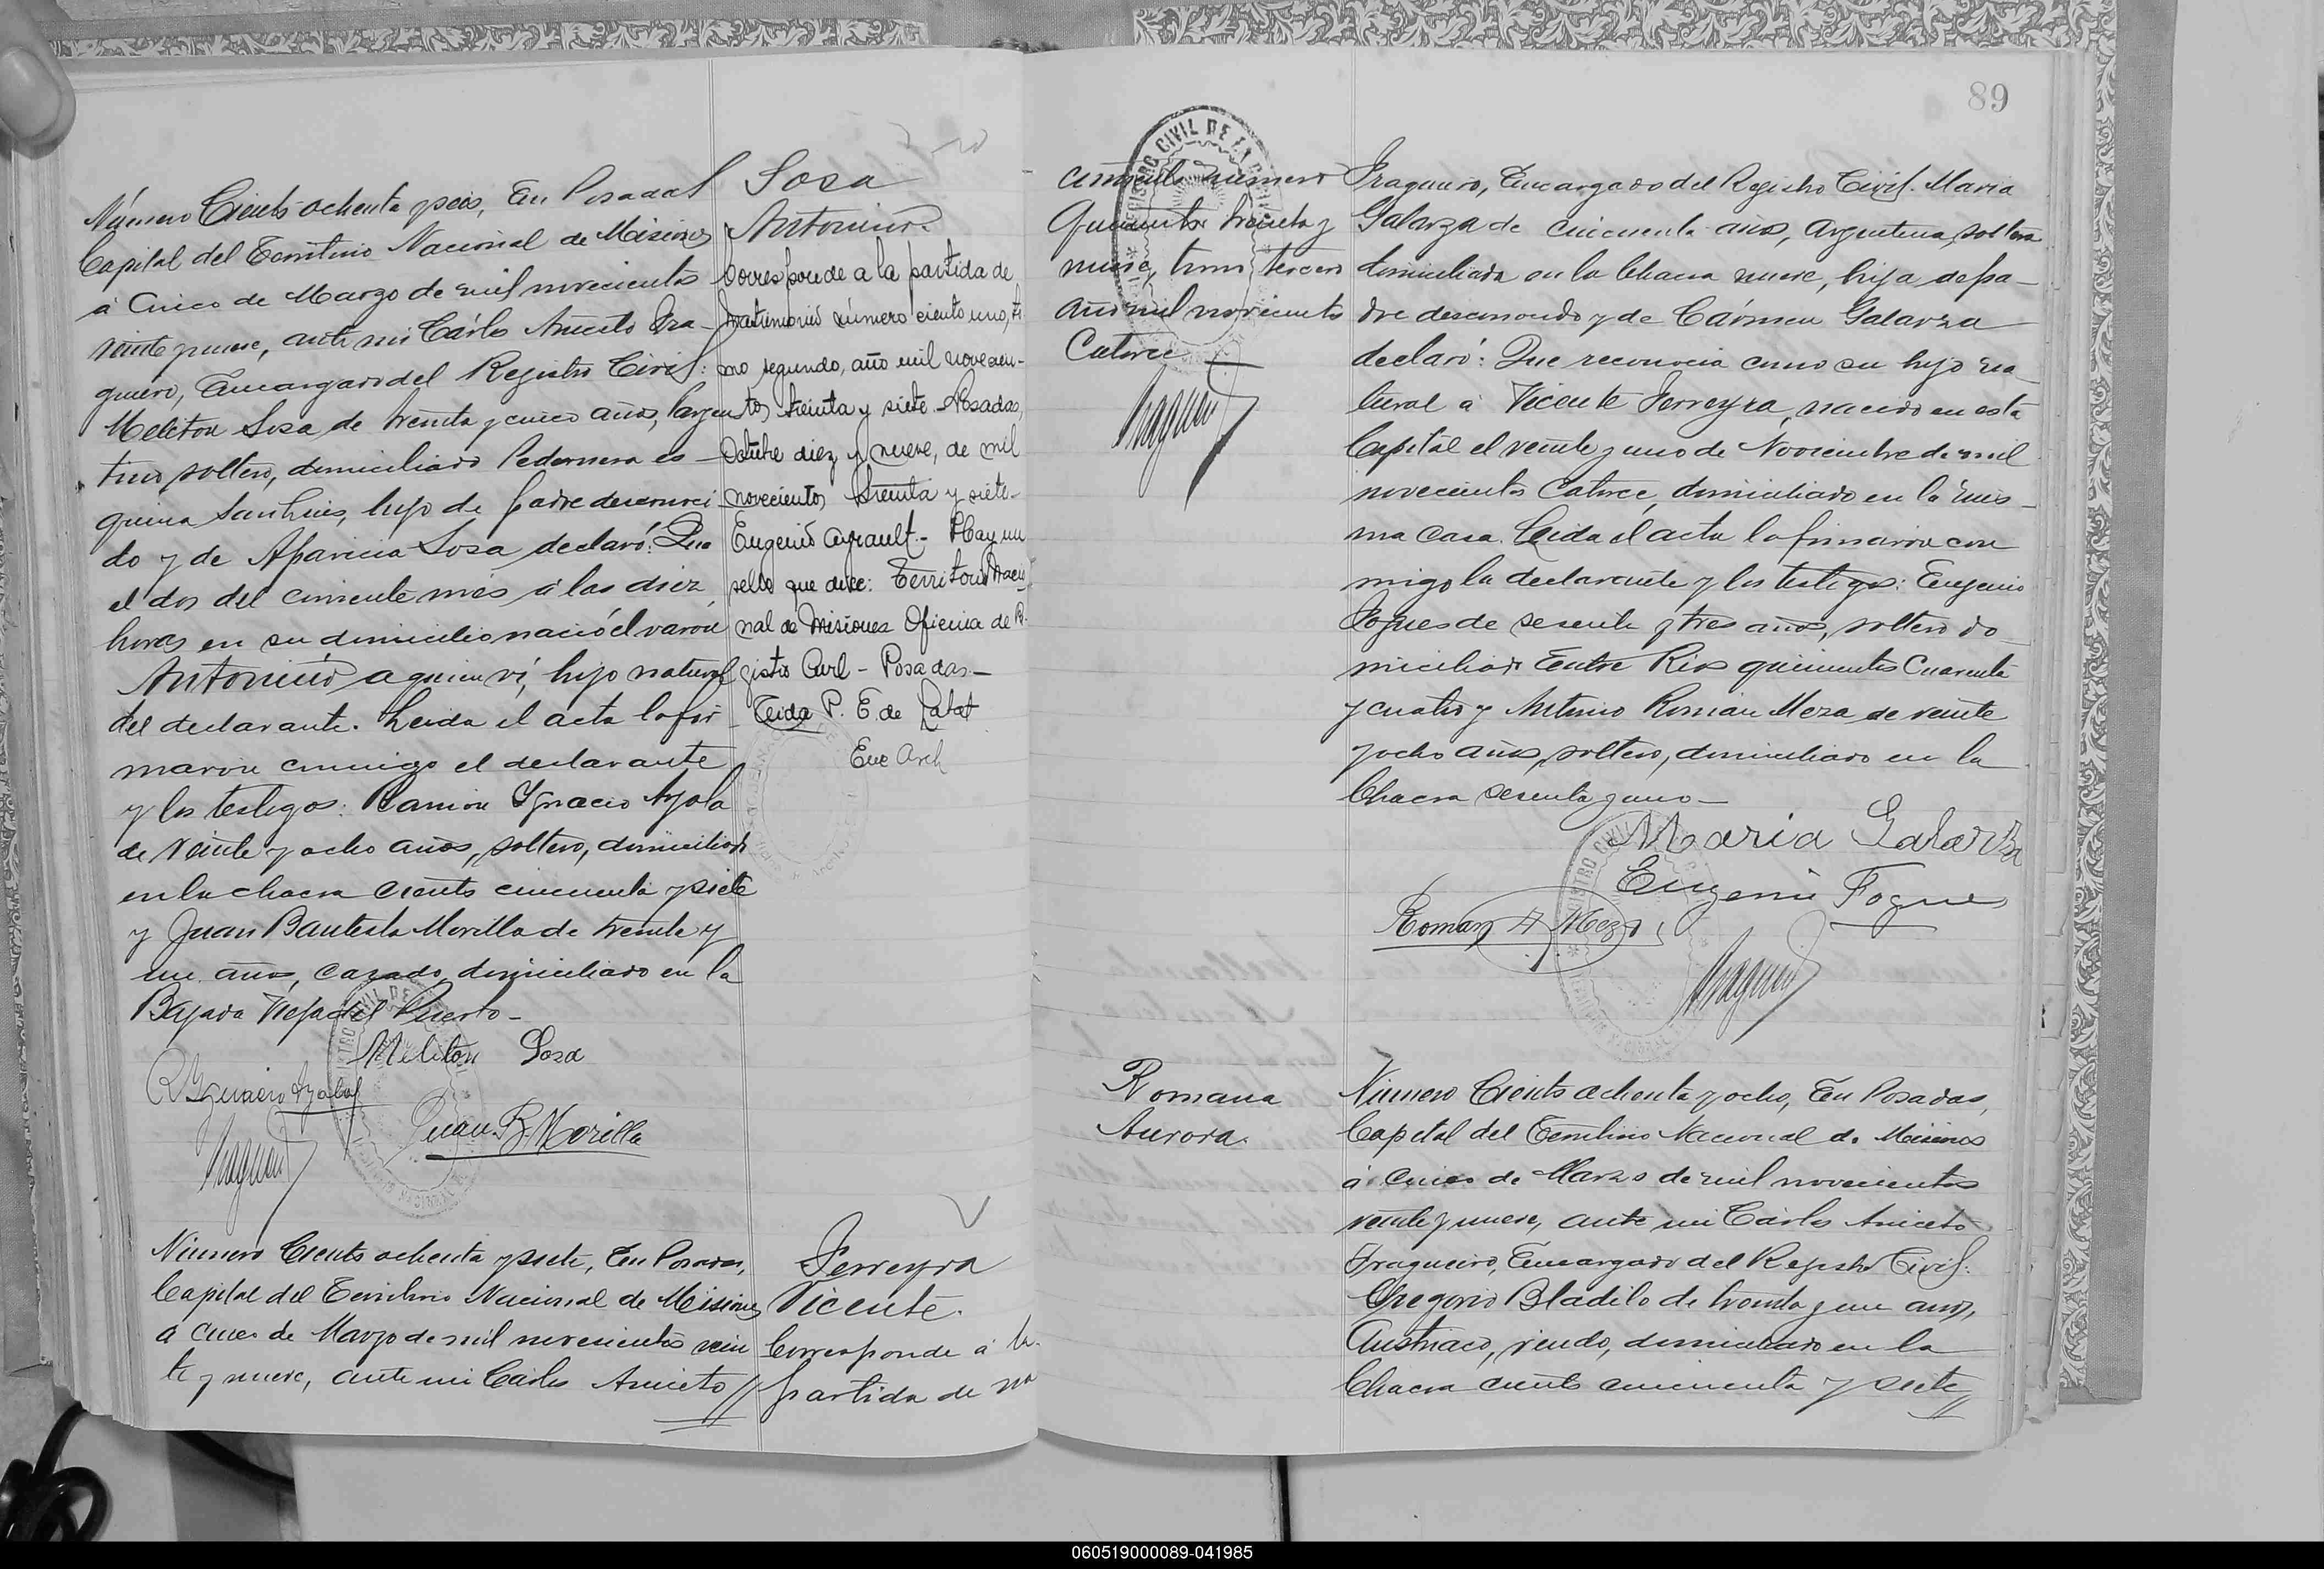 Número Ciento ochenta y seis, En Posadas
Capital del Territorio Nacional de Misiones
á Cinco de Marzo de mil novecientos
veinte y nueve, ante mi Cárlos Aniceto Fra-
gueiro, Encargado del Registro Civil:
Meliton Sosa de treinta y cinco años, Argen
tino soltero, domiciliado Pedernera es-
quina San Luis, hijo de padre desconoci
do y de Aparicia Sosa declaró: Que
el dos del corriente mes á las diez
horas en su domicilio nació el varon
Antonino a quien ví, hijo natural
del declarante. Leida el acta la fir-
maron conmigo el declarante
y los testigos: Ramon Ygnacio Ayala
de veinte y ocho años, soltero, domiciliado
en la chacra ciento cincuenta y siete
y Juan Bautista Morilla de treinta y
un años, casado, domiciliado en la
Bajada Vieja del Puerto-
Meliton Sosa
R Ygnacio Ayala
Juan B. Morilla
Sosa
Antonino.
Corresponde a la partida de
matrimonio número ciento uno, to
mo segundo, año mil novecien-
tos treinta y siete. Posadas,
Octubre diez y nueve, de mil
novecientos treinta y siete-
Eugenio Ayrault.- Hay un
sello que dice: Territorio Nacio
nal de Misiones Oficina de Re
gistro Civil - Posadas-
P. E. de
Enc Arch
Número Ciento ochenta y siete, En Posadas,
Capital del Territorio Nacional de Misiones
á cinco de Marzo de mil novecientos vein
te y nueve, ante mi Cárlos Aniceto //
Ferreyra
Vicente.
Corresponde á la
partida de na
89
cimiento número
Quinientos treinta y
nueve, tomo tercero
año mil novecientos
Catorce
Fragueiro, Encargado del Registro Civil. Maria
Galarza de cincuenta años, Argentina, soltera
domiciliada en la Chacra nueve, hija de pa-
dre desconocido y de Cármen Galarza
declaró: Que reconocia como su hijo na
tural á Vicente Ferreyra, nacido en esta
Capital el veinte y uno de Noviembre de mil
novecientos Catorce, domiciliado en la mis-
ma casa. Leida el acta la firmaron con
migo la declarante y los testigos: Eugenio
Fogues de sesenta y tres años, soltero do
miciliado Entre Rios quinientos Cuarenta
y cuatro y Antonio Roman Meza de veinte
y ocho años, soltero, domiciliado en la
Chacra sesenta y uno-
Maria Galarza
Eugenio Fogues
Roman A Meza
Romana
Aurora.
Número Ciento ochenta y ocho, En Posadas,
Capital del Territorio Nacional de Misiones
á cinco de Marzo de mil novecientos
veinte y nueve, ante mi Cárlos Aniceto
Fragueiro, Encargado del Registro Civil:
Gregorio Bladilo de treinta y un años,
Austriaco, viudo, domiciliado en la
Chacra ciento cincuenta y siete //
060519000089-041985